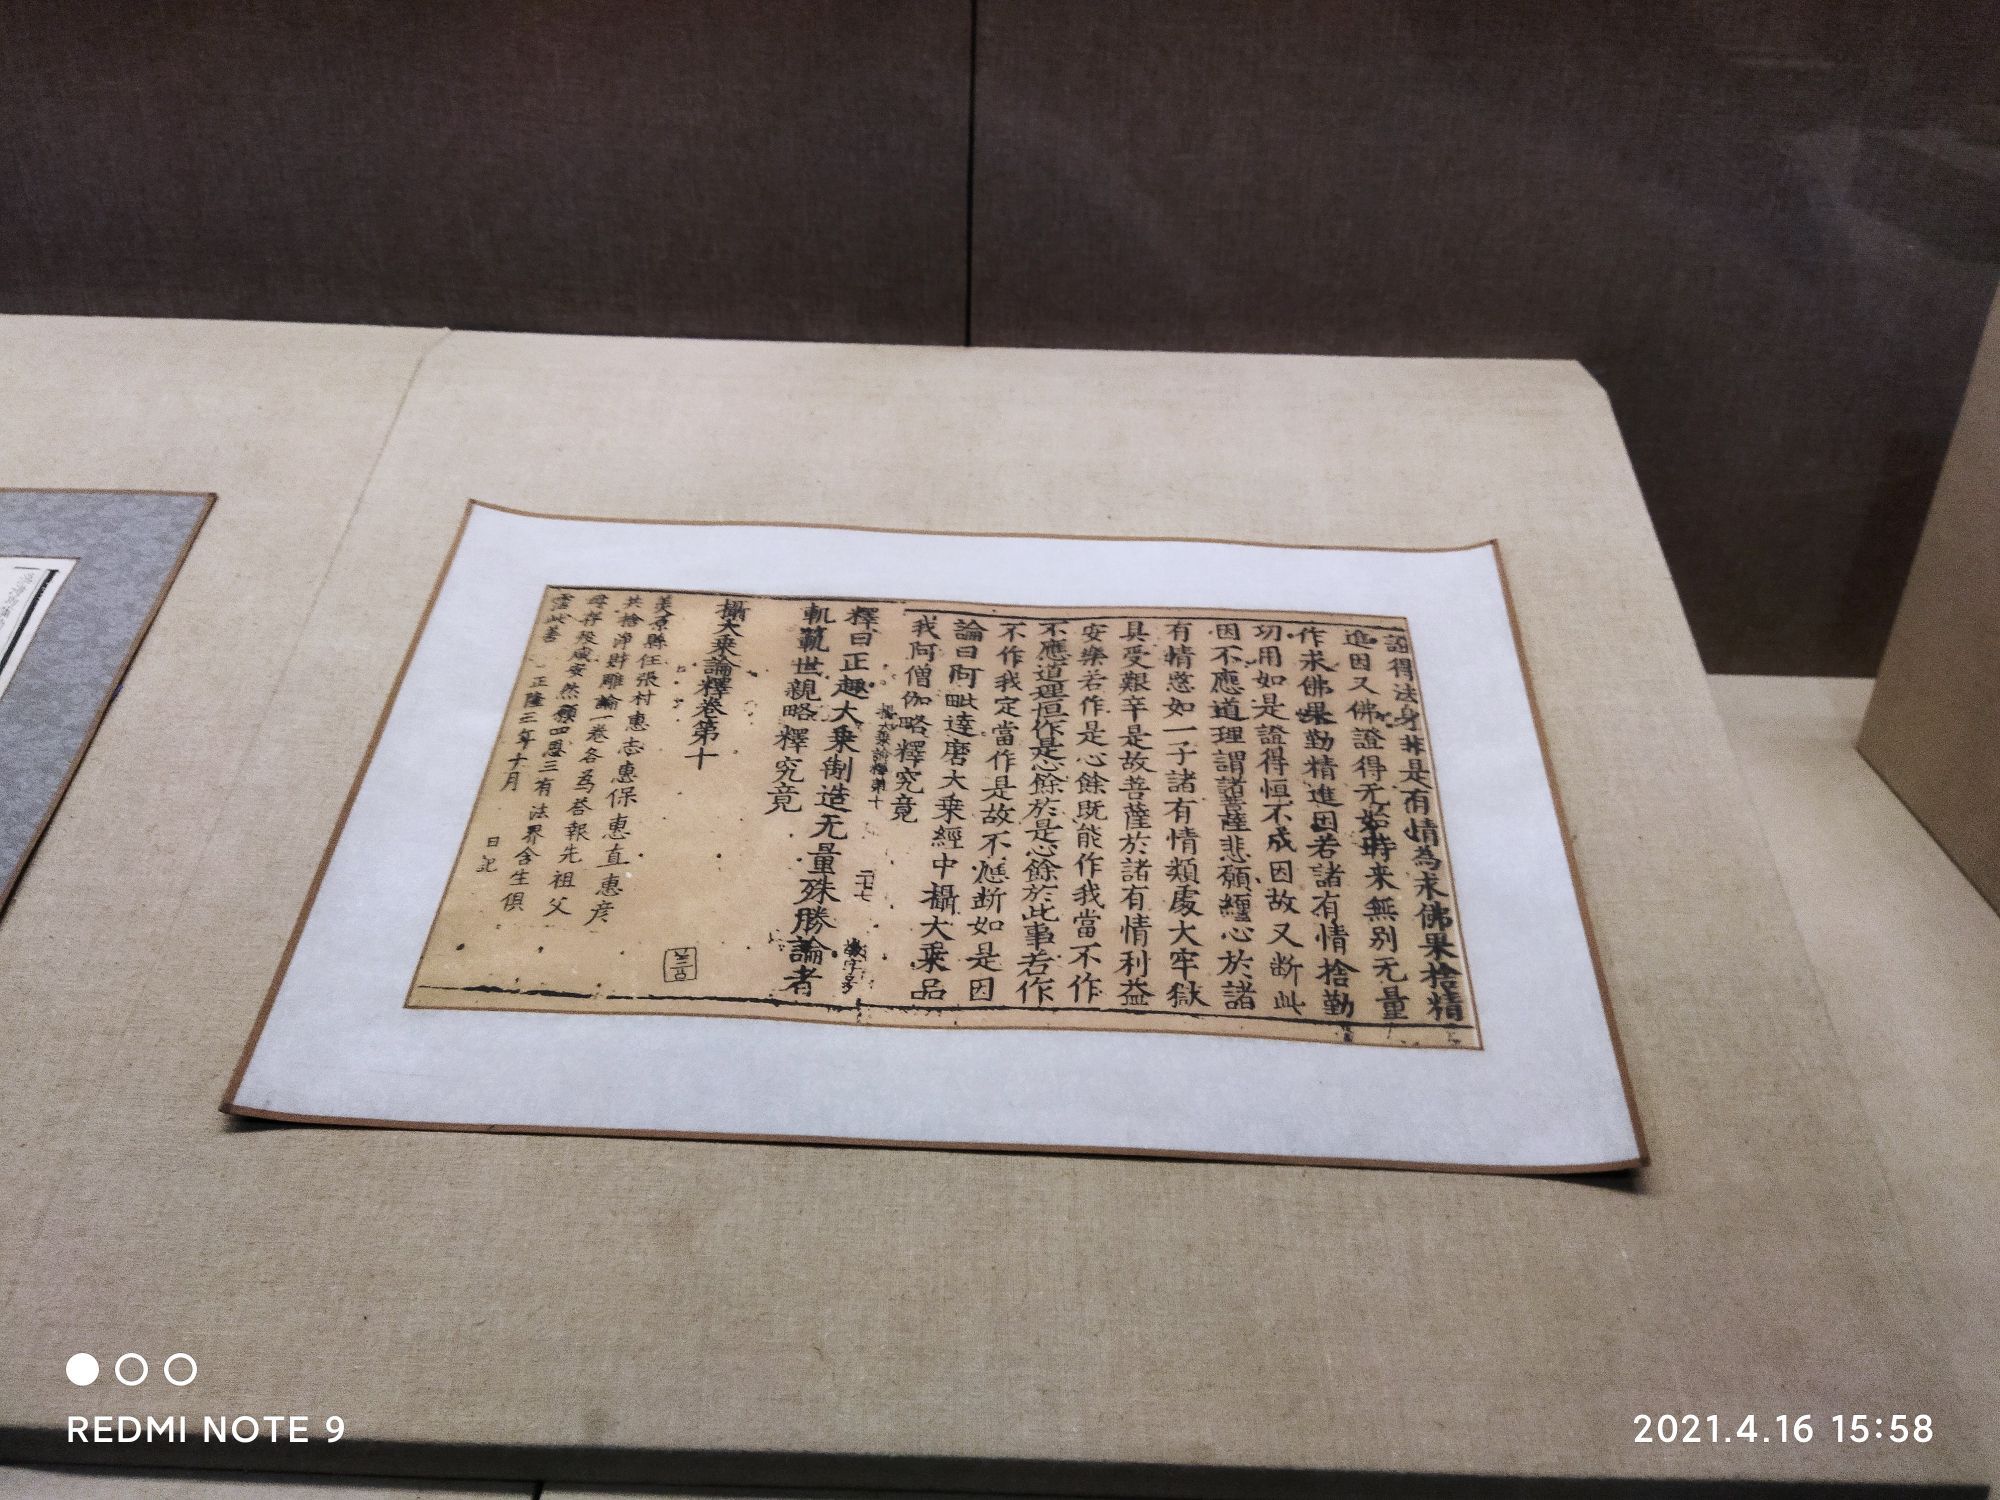 證得法身非是有情為求佛果捨精
進因又佛證得无始時来無別无量
作求佛果勤精進因若諸有情捨勤
功用如是證得恒不成因故又断此
因不應道理謂諸菩薩悲願纏心於諸
有情愍如一子諸有情類處大牢獄
具受艱辛是故菩薩於諸有情利益
安樂若作是心餘既能作我當不作
不應道理恒作是心餘於是心餘於此事若作
不作我定當作是故不應断如是因
論曰阿毗達磨大乗經中攝大乗品
我阿僧伽略釋究竟
攝大乗論釋第十 二七七
釋曰正趣大乗制造无量殊勝論者
軌範世親略釋究竟
攝大乗論釋卷第十
美原縣任張村惠志惠保惠直惠彦
共捨淨財雕論一卷各為荅報先祖父
母存殁咸安然願四恩三有法界含生俱
霑此善 正隆三年十月 日記
REDMI NOTE 9
2021.4.16 15:58